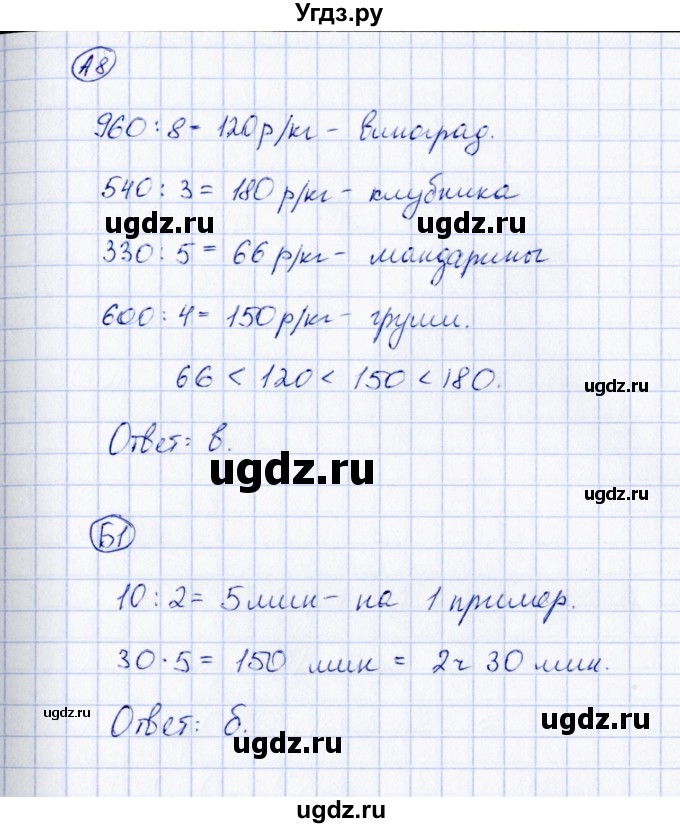 Угдз.ру
А8
960 : 8 = 120 р/кг - виноград.
540 : 3 = 180 р/кг - клубника
ugdz.ru ugdz.ru
330 : 5 = 66 р/кг - мандарины
600 : 4 = 150 р/кг - груши.
66 < 120 < 150 < 180.
ugdz.ru
Ответ: в.
ugdz.ru
ugdz.ru
Б1
10 : 2 = 5 мин - на 1 пример.
30 · 5 = 150 мин = 2 ч 30 мин.
ugdz.ru
Ответ: б.
ugdz.ru
ugdz.ru
ugdz.ru